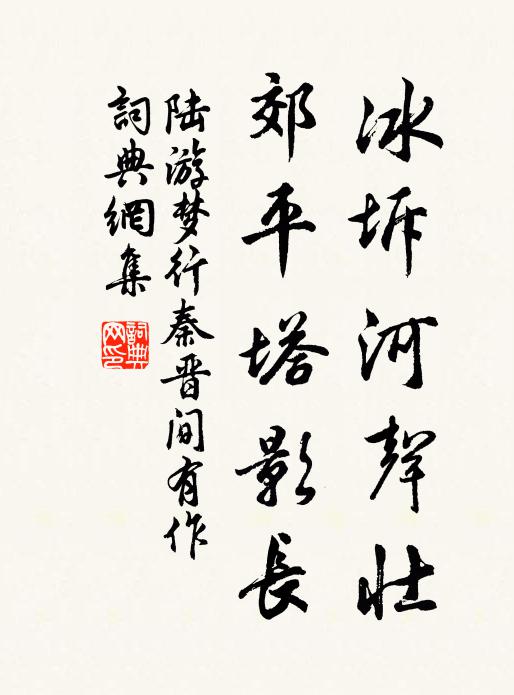 冰坼河聲壯
郊平塔影長
陆游梦行秦晋间有作
詞典網集
詞典網印